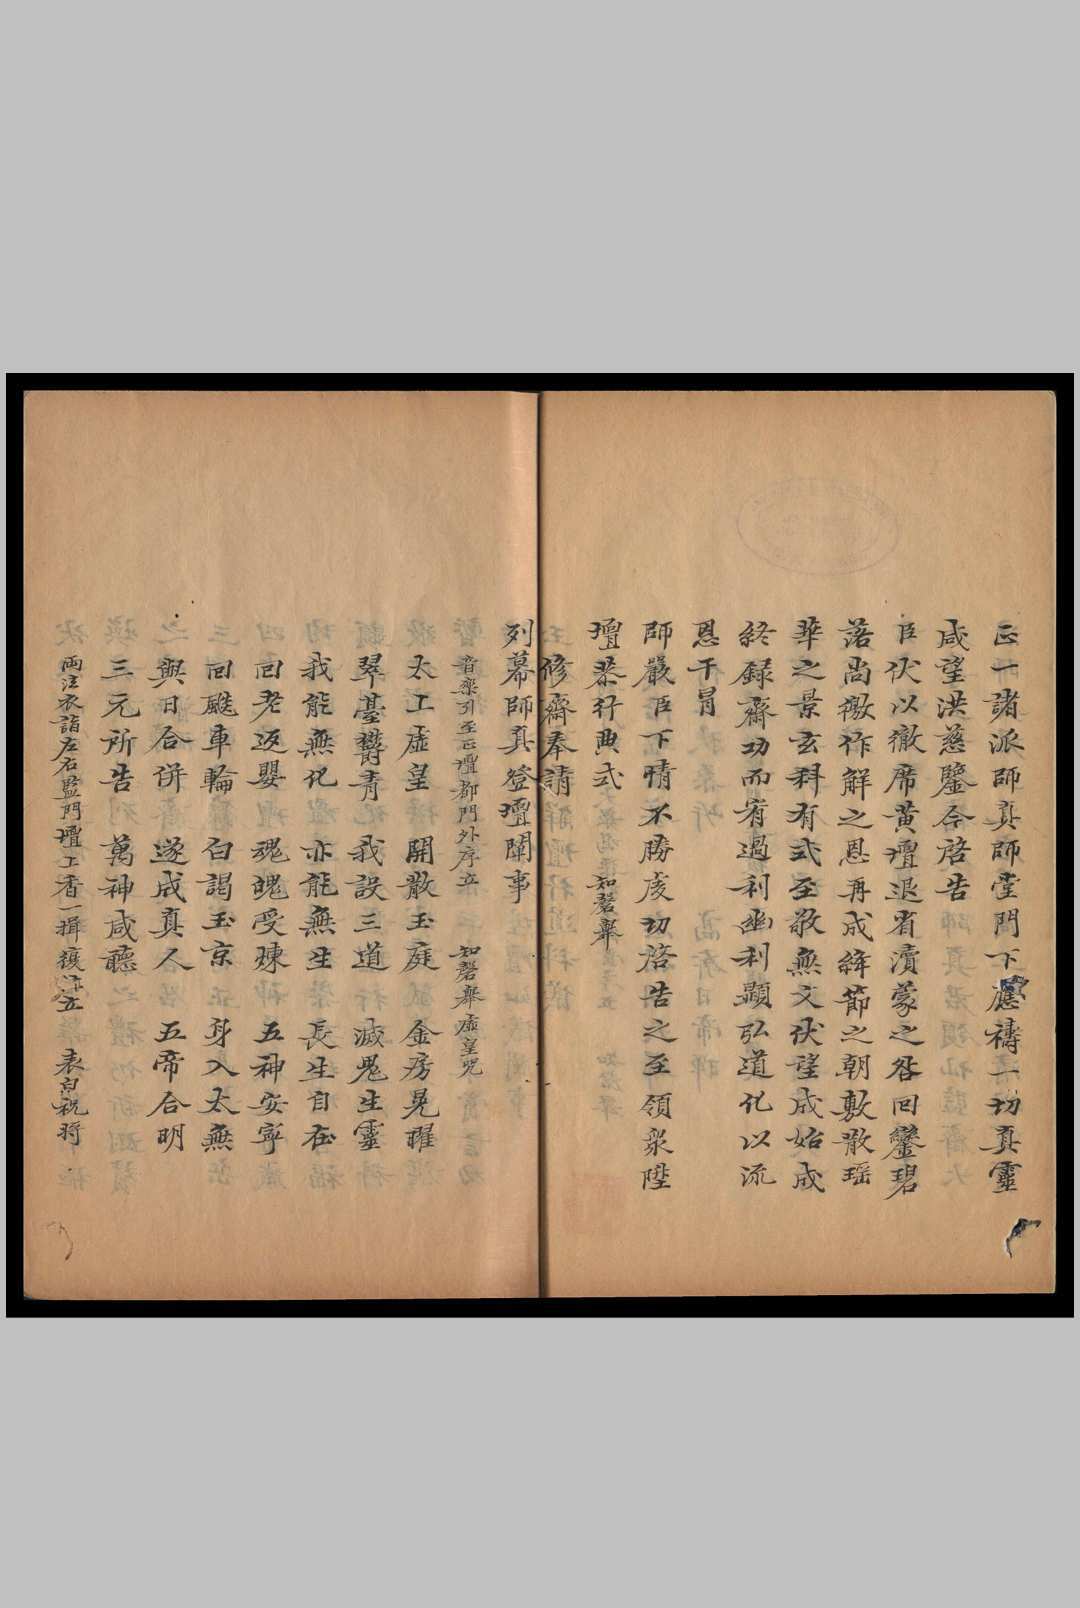 正一諸派師真師堂門下應禱一切真靈
咸望洪慈鑒今啓告
臣伏以徹席黃壇退省瀆蒙之咎回鑾碧
落尚徼作解之恩再成絳節之朝敷散瑶
華之景玄科有式至敬無文伏望成始成
終録齋功而宥過利幽利顯弘道化以流
恩干冒
師嚴臣下情不勝虔切啓告之至領衆陞
壇恭行典式　知磬舉
修齋奉請
列幕師真登壇關事
音樂引至正壇都門外序立　知磬舉虛皇咒
太上虛皇　開散玉庭　金房晃曜
翠臺欝青　我設三道　滅鬼生靈
我能無化　亦能無生　長生自在
回老返嬰　魂魄受煉　五神安寧
回飈車輪　白謁玉京　身入太無
與日合併　遂成真人　五帝合明
三元所告　萬神咸聽
兩法衣詣左右監門壇上香一揖復位立　表白祝將